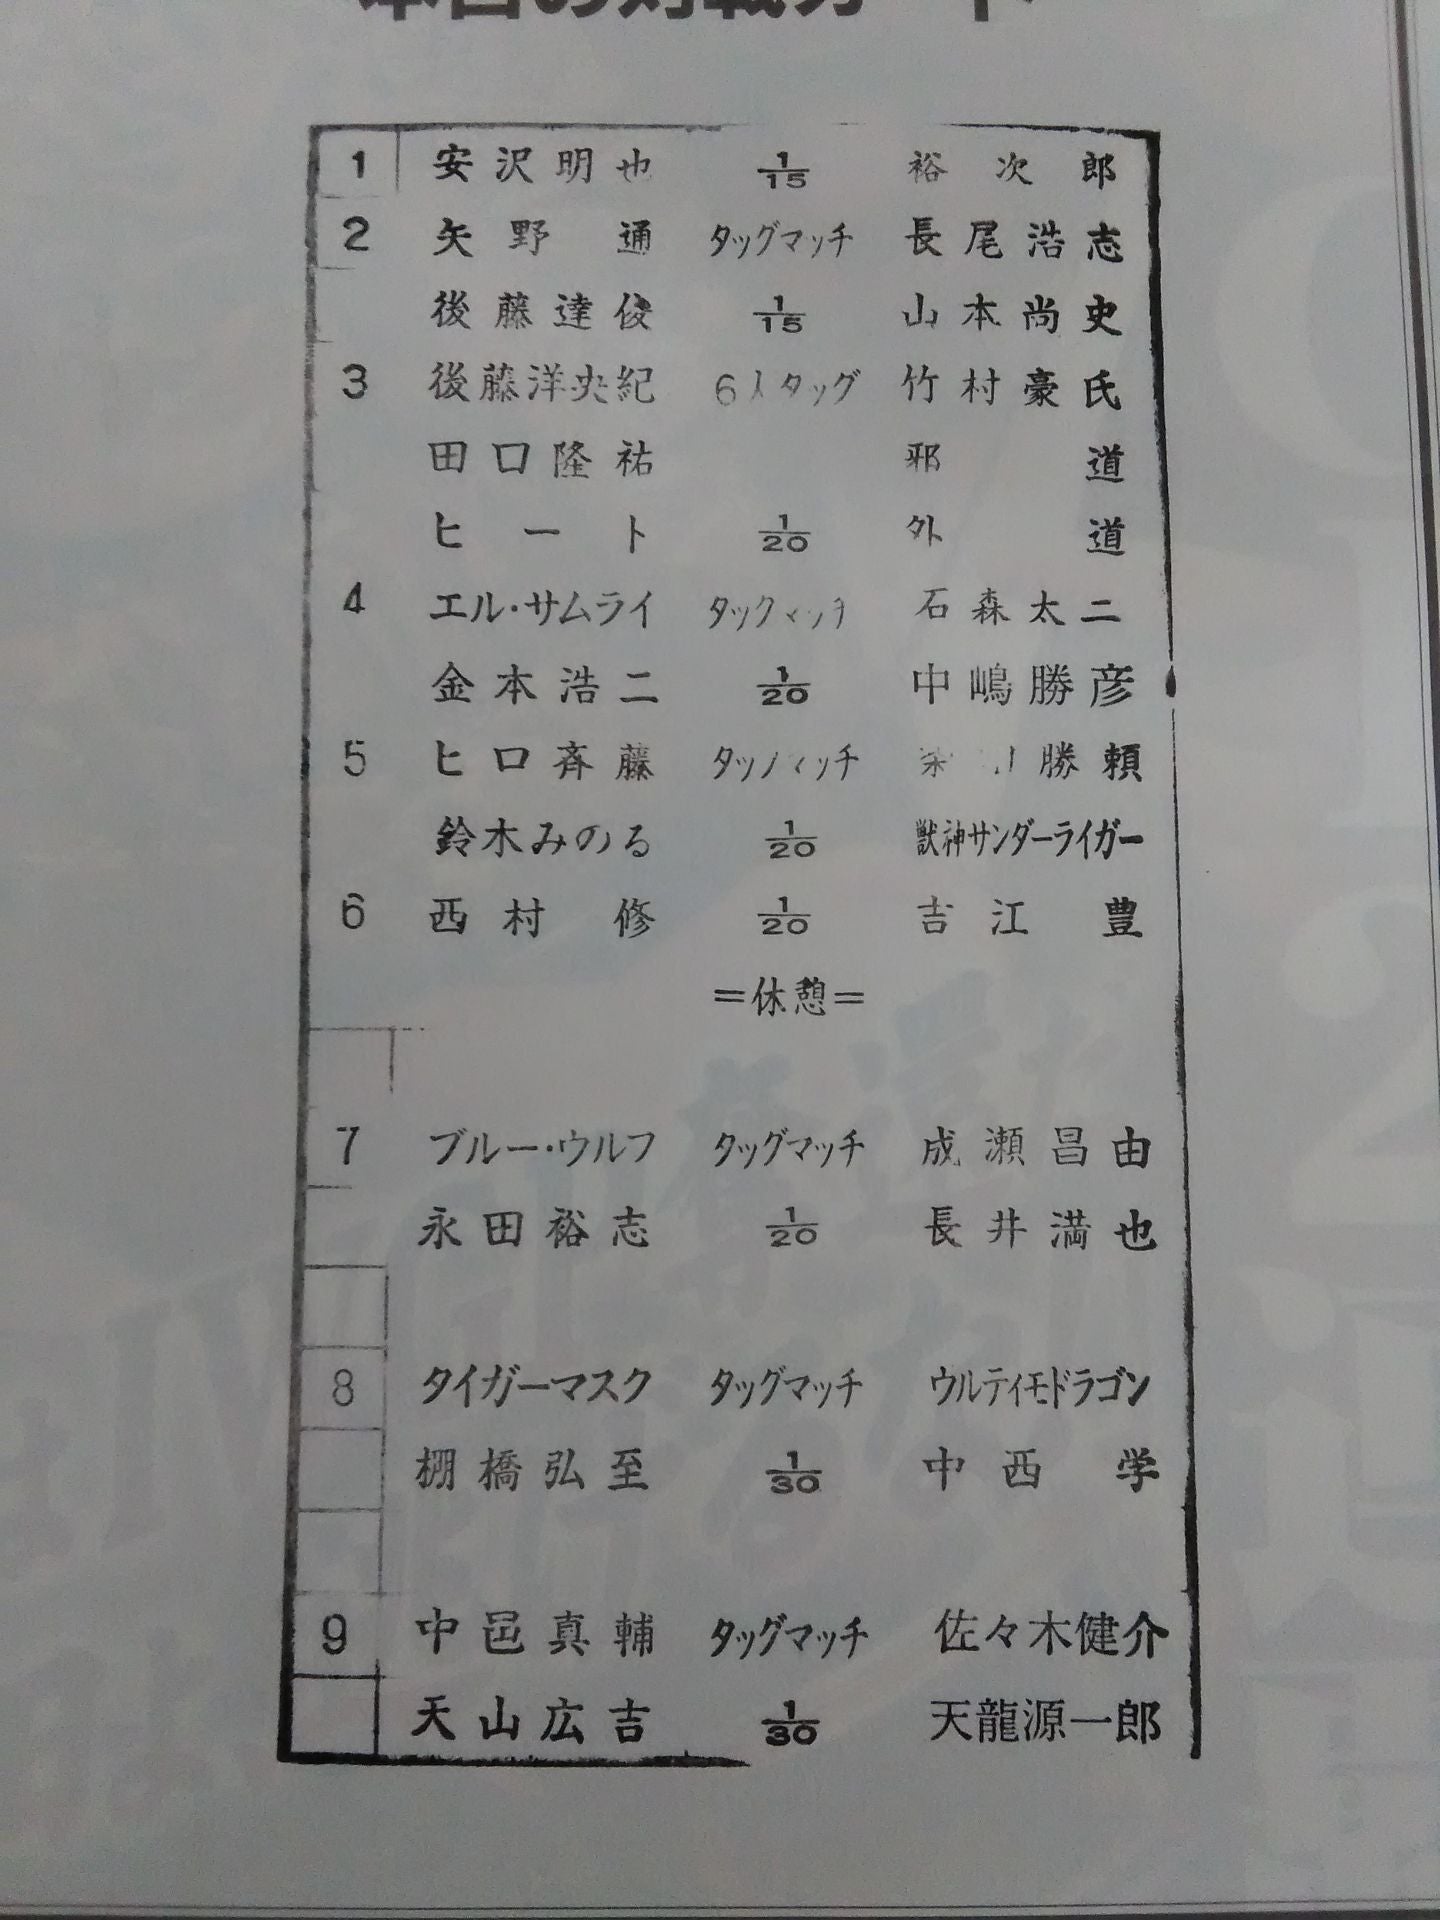 本日の対戦カード
1 安沢明也 1/15 裕次郎
2 矢野通 タッグマッチ 長尾浩志
後藤達俊 1/15 山本尚史
3 後藤洋央紀 6人タッグ 竹村豪氏
田口隆祐 邪道
ヒート 1/20 外道
4 エル・サムライ タッグマッチ 石森太二
金本浩二 1/20 中嶋勝彦
5 ヒロ斉藤 タッグマッチ 勝頼
鈴木みのる 1/20 獣神サンダーライガー
6 西村修 1/20 吉江豊
=休憩=
7 ブルー・ウルフ タッグマッチ 成瀬昌由
永田裕志 1/20 長井満也
8 タイガーマスク タッグマッチ ウルティモドラゴン
棚橋弘至 1/30 中西学
9 中邑真輔 タッグマッチ 佐々木健介
天山広吉 1/30 天龍源一郎